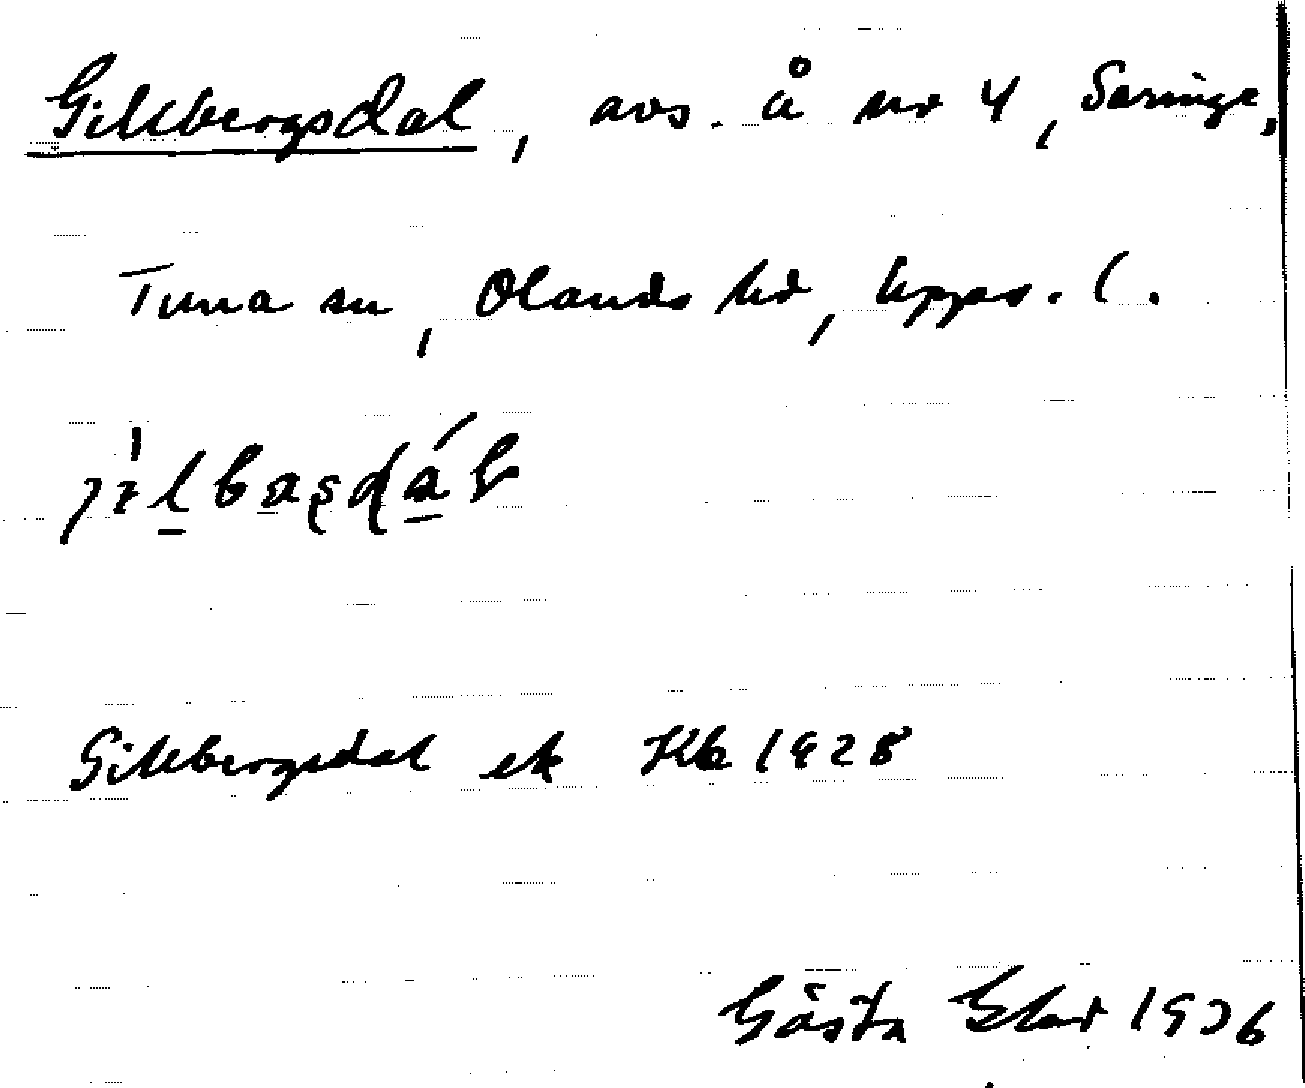 Gillbergsdal, avs. å nr 4, Söringe,
Tuna sn, Olands hd, Upps. l.
Gillbergsdal ek Kb 1928
Gösta Eker 1936